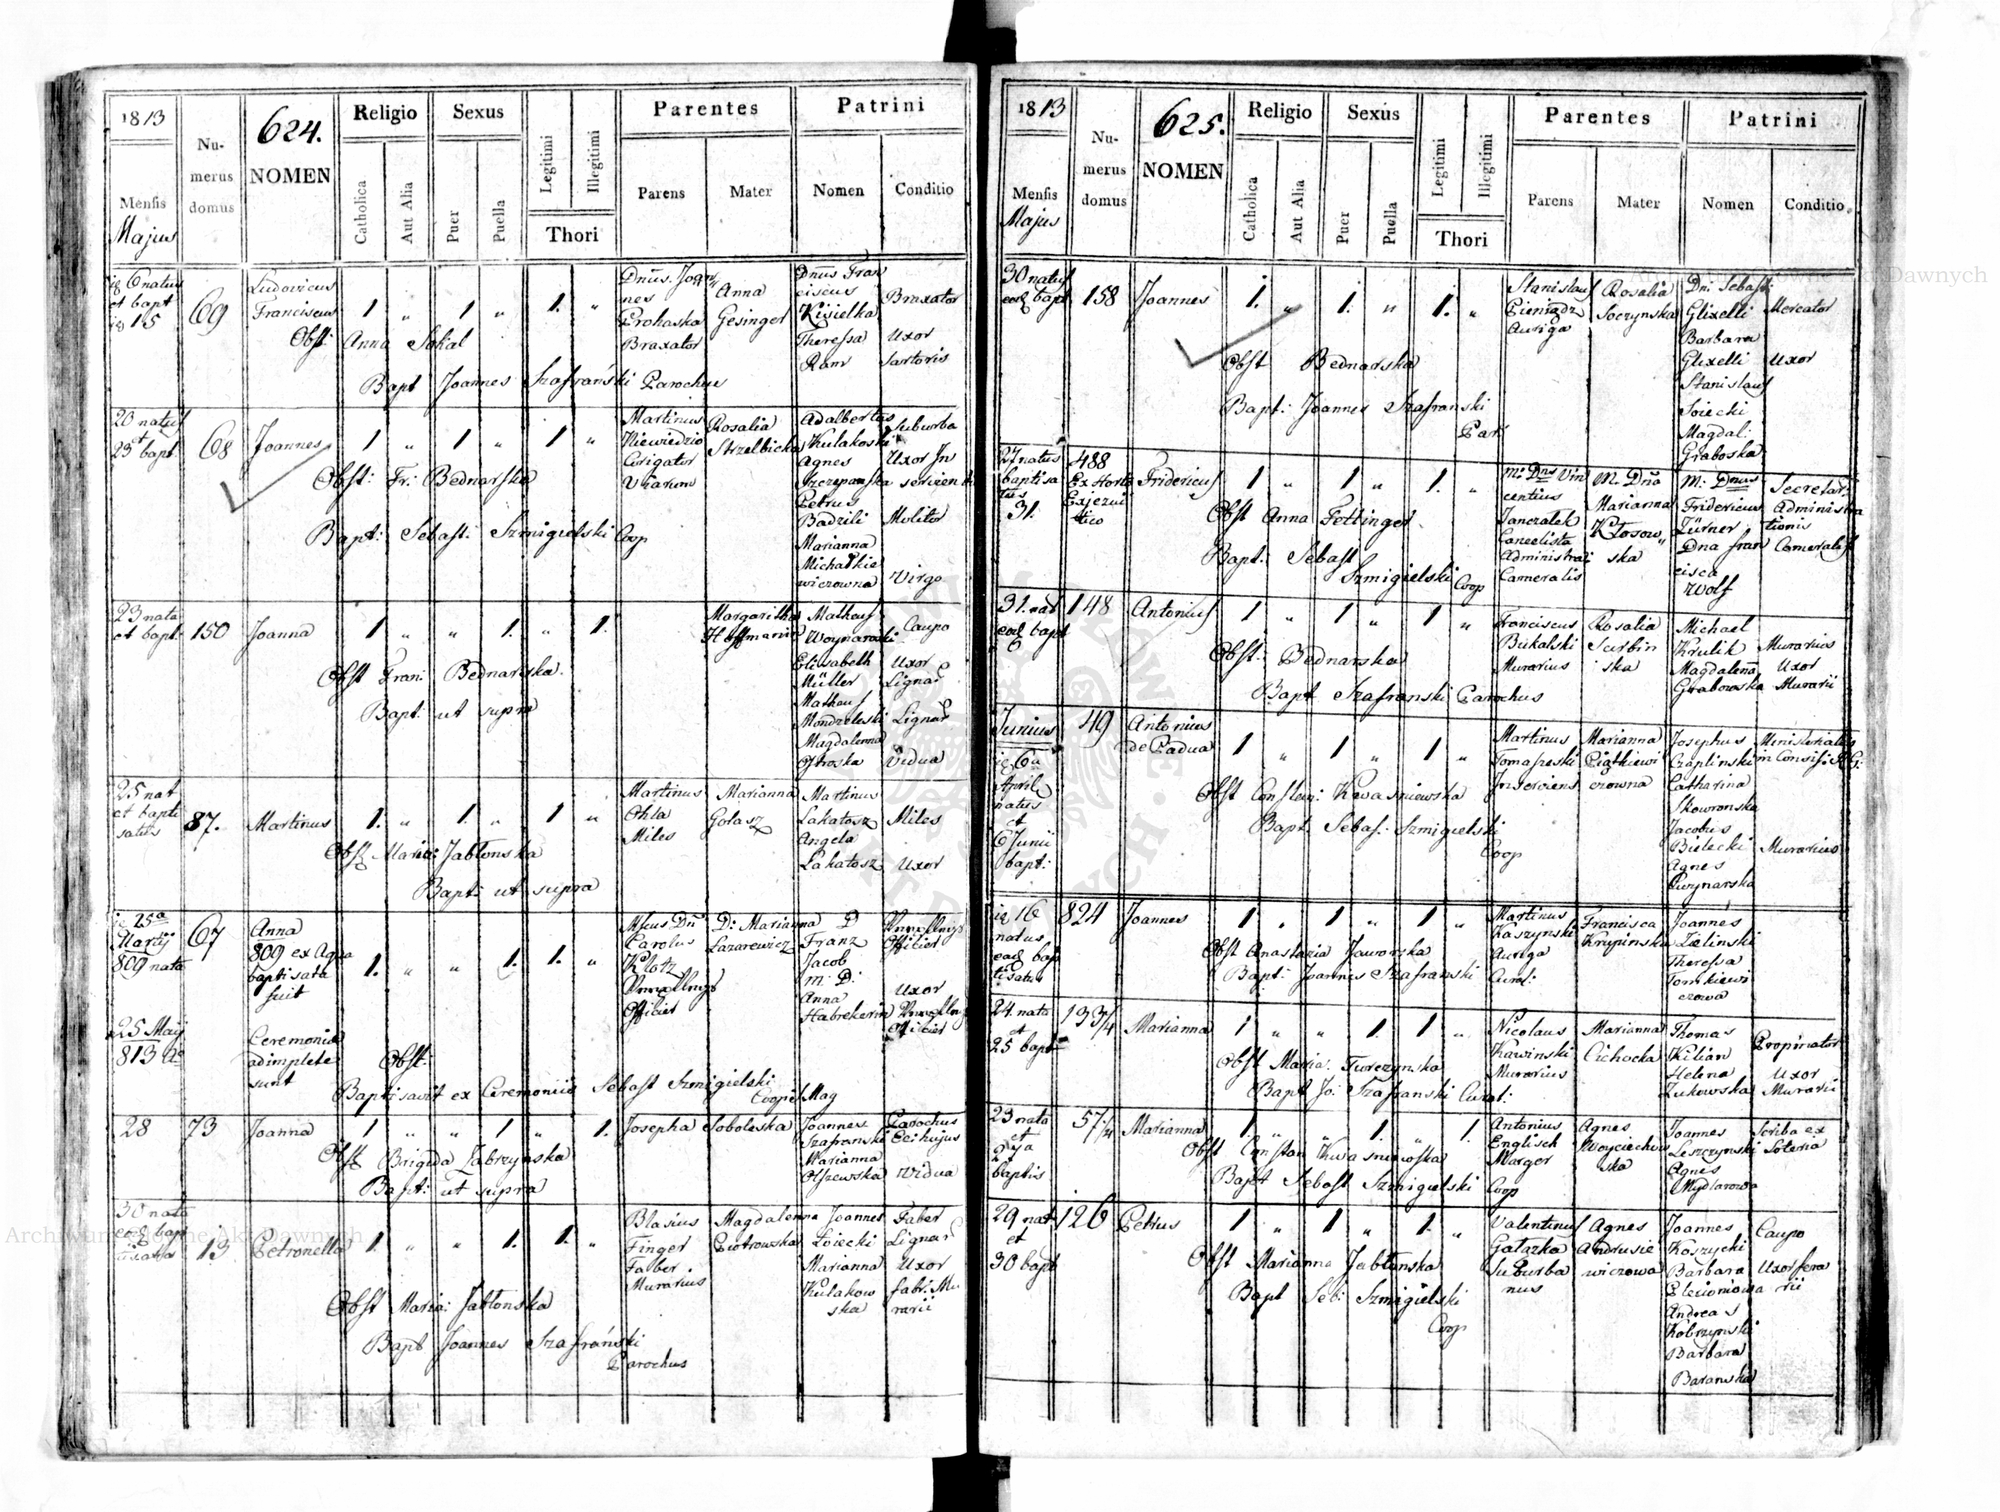 1813
624.
Religio
Sexus
Legitimi
Illegitimi
Parentes
Patrini
Numerus domus
NOMEN
Catholica
Aut Alia
Puer
Puella
Thori
Parens
Mater
Nomen
Conditio
Mensis
Majus
natus
et bapt
15
69
Ludovicus
Franciscus
1
"
1
"
1.
"
Prohaska
Braxator
Anna
Gesinger
Kisielka
Theressa
Braxator
Uxor
Sartoris
Obst: Anna Sokal
Bapt Joannes Szafrański Parochus
20 natus
et
23 bapt
68
Joannes
1
"
1
"
1
"
Martinus
Rosalia
Strzelbicka
Adalbertus
Kulakoski
Agnes
Szczepanska
Petrus
Badzili
Marianna
Michalkie
wiczowna
Suburba
Uxor In
Molitor
Virgo
Obst: Fr: Bednarska
Bapt: Sebast: Szmigielski Coop
23 nata
et bapt
150
Joanna
1
"
"
1.
"
1.
Margaritha
Hoffmanin
Matheus
Woynaroski
Elisabeth
Müller
Matheus
Mondzeleski
Magdalenna
Caupo
Uxor
Lignar
Lignar
Vidua
Obst Fran: Bednarska.
Bapt: ut supra
25 nat
et bapti
satus
87.
Martinus
1.
"
1.
"
1
"
Martinus
Ohla
Miles
Marianna
Golasz
Martinus
Lakatosz
Angela
Lakatosz
Miles
Uxor
Obst Maria: Jabłonska
Bapt: ut supra
25a
Martij
809 nata
67
Anna
809 ex Aqua
baptisata
fuit
1.
"
"
1.
1.
"
Carolus
Klotz
D: Marianna
Lazarewicz
Franz
Jacob
M: D:
Anna
Habrekerin
Uxor
25 Maij
813
Ceremoniæ
adimpletæ
sunt
Obst:
Baptisavit ex Ceremoniis Sebast Szmigielski
28
73
Joanna
1
"
"
1
"
1.
Josepha Soboleska
Joannes
Szafranski
Marianna
Olszewska
Parochus
Vidua
Obst Brigida Zabrzynska
Bapt: ut supra
30 nata
13
Petronella
1.
"
"
1.
1.
"
Blasius
Finger
Faber
Murarius
Magdalenna
Piotrowska
Joannes
Łoiecki
Marianna
Kulakow
ska
Faber
Lignar
Uxor
fabr: Mu
rarii
Obst Maria: Jabłonska
Bapt Joannes Szafrański
Parochus
1813
625.
Religio
Sexus
Legitimi
Illegitimi
Parentes
Patrini
Numerus domus
NOMEN
Catholica
Aut Alia
Puer
Puella
Thori
Parens
Mater
Nomen
Conditio
Mensis
Majus
30 natus
ead bapt
158
Joannes
1.
"
1.
"
1.
"
Stanislaus
Pieniądz
Auriga
Rosalia
Soczynska
Dn: Sebast:
Glixelli
Barbara
Glixelli
Stanislaus
Magdal:
Graboska
Mercator
Uxor
Obst Bednarska
Bapt: Joannes Szafranski
Par:
27 natus
baptisa
tus
31.
488
Ex Horto
Exjezui
tico
Fridericus
1
"
1
"
1.
"
M: Dns Vin
centius
Janczalek
Cancelista
Administrati
Cameralis
M. Dna
Marianna
Kłosow
ska
M: Dnus
Fridericus
Zürner
Dna fran
cisca
Wolf
Secretar:
Administra
tionis
Cameralis
Obst Anna Fettinger
Bapt: Sebast
Szmigielski Coop
31. nat
ead bapt
148
Antonius
1
"
1
"
1
"
Franciscus
Bukalski
Murarius
Rosalia
Surbin
ska
Michael
Krulik
Magdalena
Grabowska
Murarius
Uxor
Murarii
Obst: Bednarska
Bapt Szafranski Parochus
Junius
Aprilis
natus
et
6 Junii
bapt:
49
Antonius
de Padua
1
"
1
"
1
"
Martinus
Tomaszeski
Inserviens
Marianna
Piątkiewi
czowna
Josephus
Czaplinski
Catharina
Skowronska
Jacobus
Bielecki
Agnes
Murarius
Obst Constan: Kwasniewska
Bapt: Sebas: Szmigielski
Coop
16
natus
ead bap
tisatus
824
Joannes
1
"
1
"
1
"
Martinus
Kaszynski
Auriga
Francisca
Krupinska
Joannes
Zalinski
Theressa
Tomkiewi
czowa
Obst Anastazia Jaworska
Bapt: Joannes Szafranski Curat:
24. nata
et
25 bapt
133/4
Marianna
1
"
"
1
1
"
Nicolaus
Kawinski
Murarius
Marianna
Cichocka
Thomas
Kilian
Helena
Zukowska
Propinator
Uxor
Murarii
Obst Maria: Turczynska
Bapt Jo: Szafranski Curat:
23 nata
et
baptis
57/4
Marianna
1
"
"
1.
"
1
Antonius
Englisch
Agnes
Woyciechow
ska
Joannes
Leszczynski
Agnes
Mydlarowa
Scriba ex
Obst Constan Kwasniewska
Bapt Sebast Szmigielski Coop
29 nat
et
30 bapt
126
Petrus
1
"
1
"
1.
"
Valentinus
Galazka
Suburba
nus
Agnes
Andrusie
wiczowa
Joannes
Koszycki
Barbara
Andreas
Kobzynski
Barbara
Baranska
Caupo
Uxor fera
rii
Obst Marianna Jabłonska
Bapt Seb: Szmigielski
Coop
Archiwum Główne Akt Dawnych
Archiwum Główne Akt Dawnych